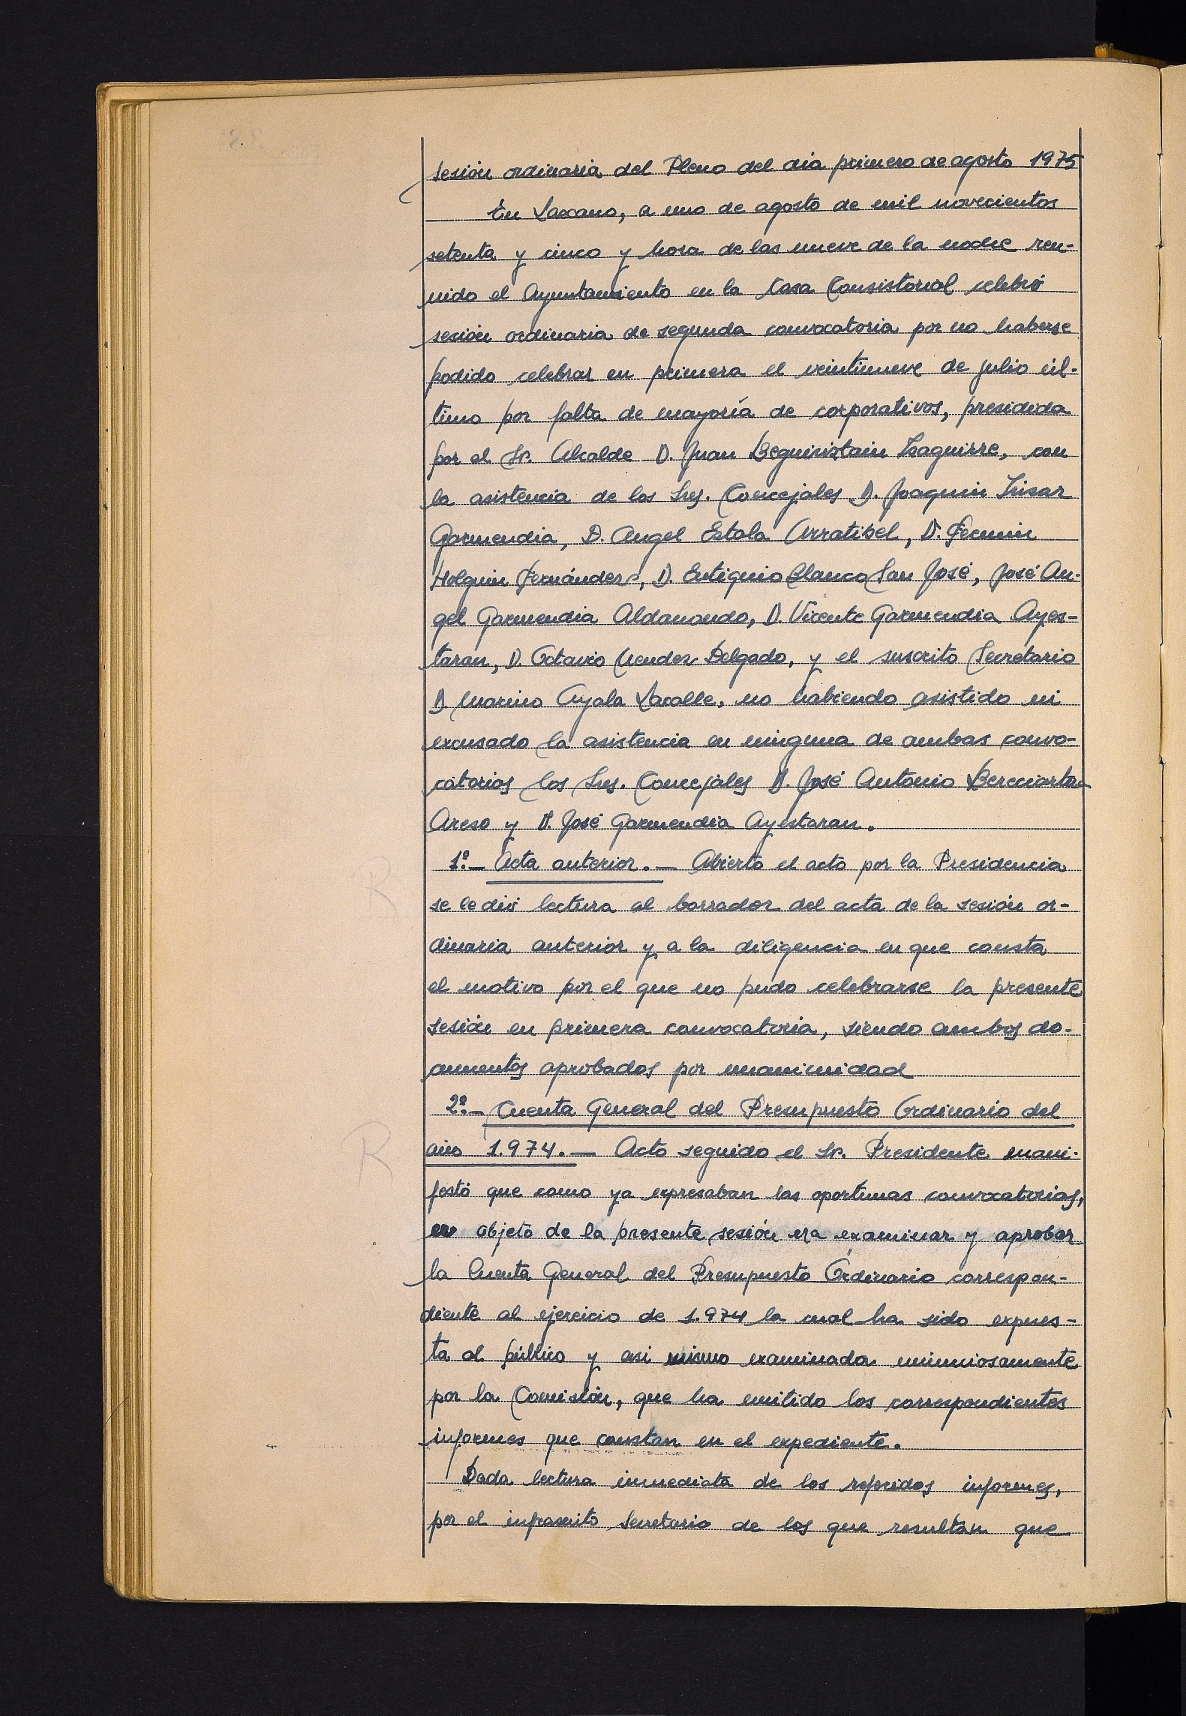 Sesión ordinaria del Pleno del día primero de agosto 1975
En Lazcano, a uno de agosto de mil novecientos
setenta y cinco y hora de las nueve de la noche reu-
nido el Ayuntamiento en la Casa Consistorial celebró
sesión ordinaria de segunda convocatoria por no haberse
podido celebrar en primera el veintinueve de julio úl-
timo por falta de mayoría de corporativos, presidida
por el Sr. Alcalde D. Juan Beguiristain Izaguirre, con
la asistencia de los Srs. Concejales D. Joaquín Irizar
Garmendia, D. Angel Estala Arratibel, D. Fermin
Holguin Fernández, D. Eutiquio Blanco San José, José An-
gel Garmendia Aldanondo, D. Vicente Garmendia Ayes-
taran, D. Octavio Mendez Delgado, y el suscrito Secretario
D Marino Ayala Lacalle, no habiendo asistido ni
excusado la asistencia en ninguna de ambas convo-
catorias los Srs. Concejales D. José Antonio Bereciartua
Areso y D. José Garmendia Ayestaran.
1º.- Acta anterior.- Abierto el acto por la Presidencia
se le dió lectura al borrador del acta de la sesión or-
dinaria anterior y a la diligencia en que consta
el motivo por el que no pudo celebrarse la presente
sesión en primera convocatoria, siendo ambos do-
cumentos aprobados por unanimidad
2º.- Cuenta General del Presupuesto Ordinario del
año 1.974.- Acto seguido el Sr. Presidente mani-
festó que como ya expresaban las oportunas convocatorias,
objeto de la presente sesión era examinar y aprobar
la Cuenta General del Presupuesto Ordinario correspon-
diente al ejercicio de 1.974 la cual ha sido expues-
ta al público y asi mismo examinada minuciosamente
por la Comisión, que ha emitido los correspondientes
informes que constan en el expediente.
Dada lectura inmediata de los referidos informes,
por el infrascrito Secretario de los que resultan que
R
R